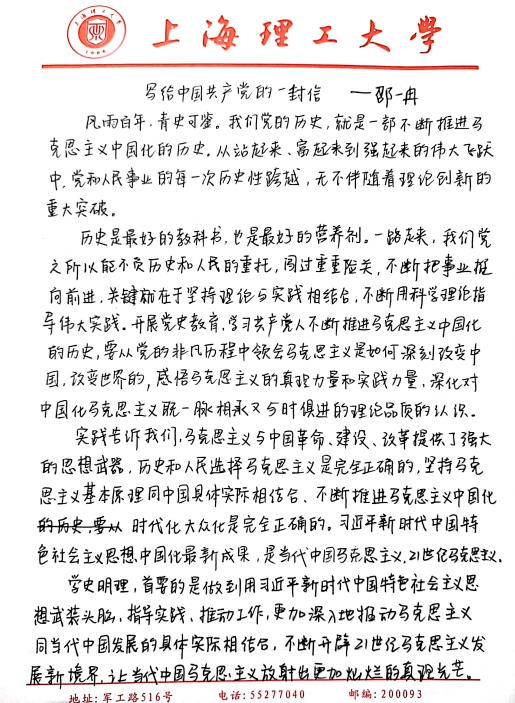 上海理工大学
1906
写给中国共产党的一封信 ——邵一冉
风雨百年,青史可鉴。我们党的历史,就是一部不断推进马
克思主义中国化的历史。从站起来、富起来到强起来的伟大飞跃
中,党和人民事业的每一次历史性跨越,无不伴随着理论创新的
重大突破。
历史是最好的教科书,也是最好的营养剂。一路走来,我们党
之所以能不负历史和人民的重托,闯过重重险关,不断把事业推
向前进,关键就在于坚持理论与实践相结合,不断用科学理论指
导伟大实践。开展党史教育,学习共产党人不断推进马克思主义中国化
的历史,要从党的非凡历程中领会马克思主义是如何深刻改变中
国,改变世界的,感悟马克思主义的真理力量和实践力量,深化对
中国化马克思主义既一脉相承又与时俱进的理论品质的认识。
实践告诉我们,马克思主义与中国革命、建设、改革提供了强大
的思想武器,历史和人民选择马克思主义是完全正确的,坚持马克
思主义基本原理同中国具体实际相结合、不断推进马克思主义中国化
的历史,要从 时代化大众化是完全正确的。习近平新时代中国特
色社会主义思想,中国化最新成果,是当代中国马克思主义,21世纪马克思主义.
学史明理,首要的是做到用习近平新时代中国特色社会主义思
想武装头脑,指导实践、推动工作,更加深入地推动马克思主义
同当代中国发展的具体实际相结合,不断开辟21世纪马克思主义发
展新境界,让当代中国马克思主义放射出更加灿烂的真理光芒。
地址:军工路516号 电话:55277040 邮编:200093